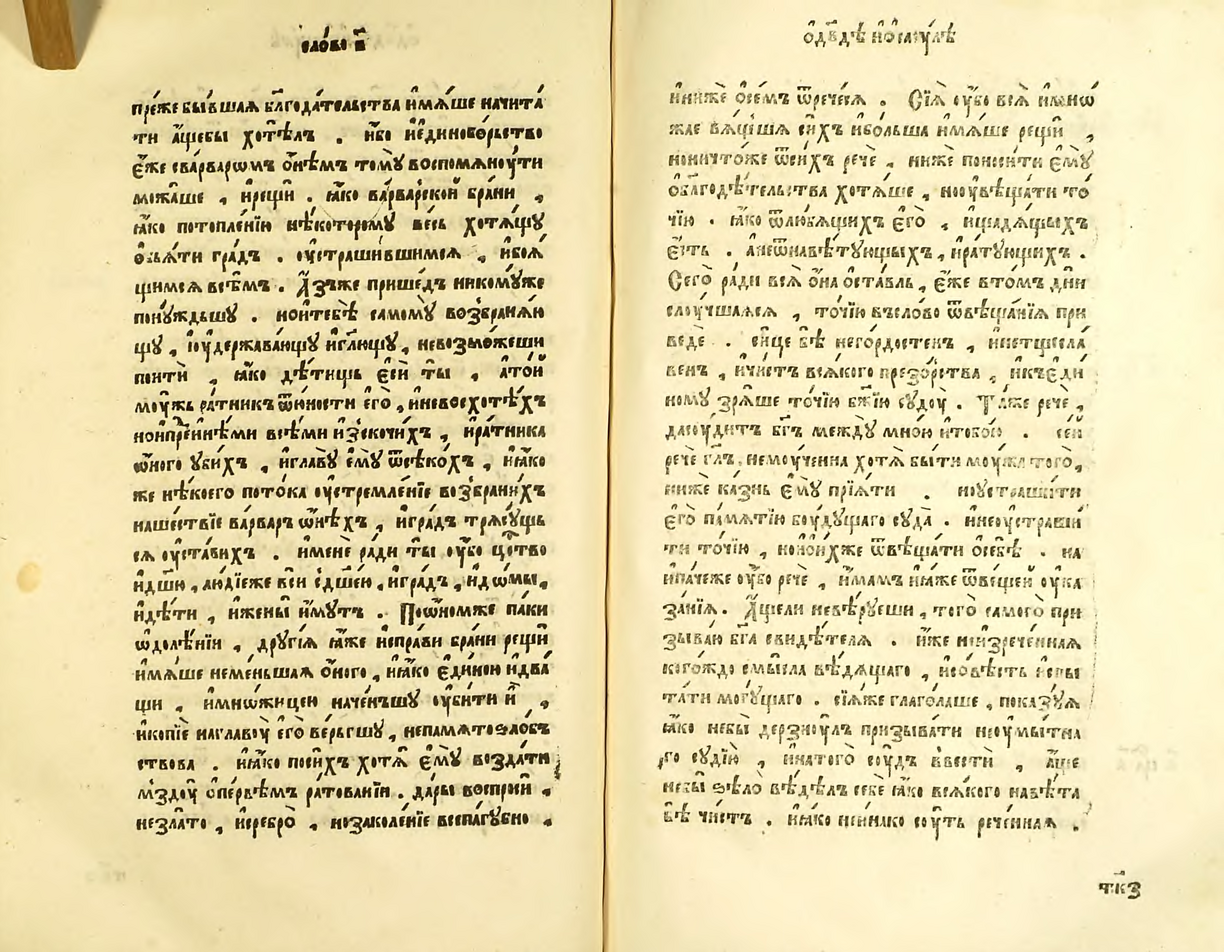 сло́во в҃
пре́же бы́вшаѧ бл҃года́тельства и҆мѧ́ше начита́
ти а҆́щебы хотѣ́лъ . и҆́бо и҆единобо́рьство
е҆́же сва́рваромъ ѻ҆нѣ́мъ томꙋ̀ воспомѧноу́ти
можа́ше , и҆рещѝ . ꙗ҆́ко ва́рварской бра́ни ,
ꙗ҆́ко потопле́нїю нѣ́которомꙋ весь хотѧ́щꙋ
ѻ҆б̾ѧ́ти гра́дъ . оу҆страши́вшимсѧ , и҆боѧ́
щимсѧ всѣ́мъ . А҆́зъже прише́дъ никомꙋ́же
понꙋ́ждьшꙋ . нои҆тебѣ̀ самомꙋ̀ возбранѧ́ю
щꙋ , и҆оу҆держава́ющꙋ и҆гл҃ющꙋ , невозмо́жеши
поитѝ , ꙗ҆́ко дѣ́тищь е҆сѝ ты̀ , а҆то́й
моу́жь ра́тникъ ѿю҆́ности е҆гѡ̀ , и҆невосхотѣ́хъ
нои҆пре́йнїѣми всѣ́ми и҆зскочи́хъ , и҆ра́тника
ѻ҆́ного ᲂу҆би́хъ , и҆главꙋ̀ е҆мꙋ̀ ѿсѣко́хъ , и҆ꙗ҆́ко
же нѣ́коего пото́ка оу҆стремле́нїе возбрани́хъ
наше́ствїе ва́рваръ ѻ҆нѣ́хъ , и҆гра́дъ трѧсꙋ́щь
сѧ оу҆ста́вихъ . и҆менѐ ра́ди ты̀ оу҆́бо цр҃тво
и҆дш҃ю , лю́дїеже всѝ с̾дш҃ею , и҆гра́дъ , и҆до́мы ,
и҆дѣ́ти , и҆жены̀ и҆́мꙋтъ . Поѻ҆но́мже па́ки
ѡ҆долѣ́нїи , дрꙋгі́ѧ ꙗ҆́же и҆спра́ви бра́ни рещѝ
и҆мѧ́ше неме́ньшаѧ ѻ҆́ного , и҆ꙗ҆́ко е҆ди́ною и҆два́
щи , и҆мно́жицею наче́ншꙋ оу҆би́ти и҆̀ ,
и҆копїѐ наглавоу̀ е҆гѡ̀ ве́рьгшꙋ , непамѧтоѕло́бъ
ствова . и҆ꙗ҆́ко поси́хъ хотѧ̀ е҆мꙋ̀ возда́ти
мздоу̀ ѻ҆пе́рвѣмъ ра́тованїи . да́ры воспрїи́ ,
незла́то , исребро̀ , нозаколе́нїе всепа́гꙋбно .
ѻ҆дв҃дѣ и҆ѻ҆саоу́лѣ
и҆ни́же ѻ҆се́мъ ѿрече́сѧ . Сїѧ̀ оу҆́бо всѧ̀ и҆мно́
жае вѧ́щшїѧ си́хъ и҆бо́льша и҆мѧ́ше рещѝ ,
нони́чтоже ѿси́хъ речѐ , ни́же поноси́ти е҆мꙋ̀
ѻ҆благодѣ́тельства хотѧ́ше , нооу҆вѣща́ти то́
чїю . ꙗ҆́ко ѿлю́бѧщихъ е҆гѡ̀ , и҆щадѧ́щыхъ
е҆́сть . а҆неѿнавѣ́тꙋющыхъ , и҆ра́тꙋющихъ .
Сего̀ ра́ди всѧ̀ ѻ҆́на ѻ҆ста́вль , е҆́же вто́мъ днѝ
слоучи́шасѧ , то́чїю въсло́во ѿвѣща́нїѧ при
веде . си́це бѣ̀ него́рдостенъ , и҆нетщесла́
венъ , и҆чи́стъ всѧ́кого презо́рства , и҆къе҆ди́
номꙋ зрѧ́ше то́чїю бж҃їю сꙋдоу̀ . Та́же речѐ ,
дасоу́дитъ бг҃ъ междꙋ̀ мно́ю и҆тобо́ю . сеи̂
речѐ гл҃ъ , немоу́ченна хотѧ̀ бы́ти моу́жа того̀ ,
ни́же ка́знь е҆мꙋ̀ прїѧ́ти . ноу҆страши́ти
е҆го̀ па́мѧтїю боу́дꙋщаго сꙋда̀ . и҆неоу҆страши́
ти то́чїю , нои҆ѻ҆и́хже ѿвѣща́ти ѻ҆себѣ̀ . на
и҆па́чеже оу҆́бо речѐ , и҆́мамъ и҆ꙗ҆́же ѿве́щей оу҆ка
за́нїѧ . А҆́щели невѣ́рꙋеши , того̀ самого̀ при
зыва́ю бг҃а свидѣ́телѧ . и҆́же неи҆зрече́ннаѧ
кого́ждо смы́сла вѣ́дѧщаго , и҆со́вѣсть и҆спы
та́ти могꙋ́щаго . сїѧ́же глаго́лаше , показꙋ́ѧ
ꙗ҆́ко небы̀ дерзноу́лъ призыва́ти неоу҆мы́тна
го сꙋдїю̀ , и҆нато́го соу́дъ ввестѝ , а҆́ще
небы̀ ѕѣло̀ вѣ́дѣлъ себѐ ꙗ҆́ко всѧ́кого навѣ́та
бѣ̀ чи́стъ . и҆ꙗ҆́ко неи҆на́ко соу́ть рече́ннаѧ .
тк҃з